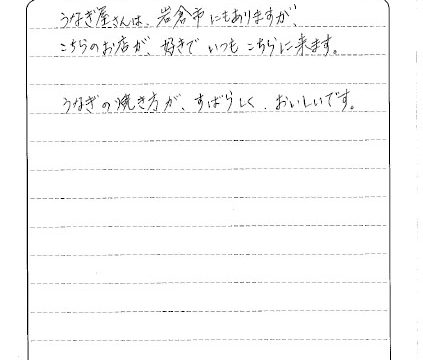 うなぎ屋さんは、岩倉市にもありますが、
こちらのお店が、好きで いつも こちらに来ます。
うなぎの焼き方が、すばらしく、おいしいです。